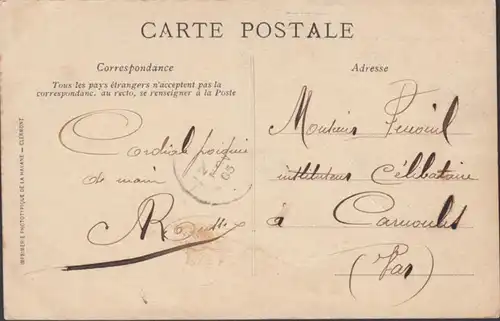 CARTE POSTALE
Correspondance
Tous les pays étrangers n'acceptent pas la
correspondanc. au recto, se renseigner à la Poste
Cordiale poignée
de main
Adresse
Monsieur
instituteur Célibataire
à Carnoules
(Var)
05
IMPRIMERIE PHOTOTYPIQUE DE LA HALLE — CLERMONT